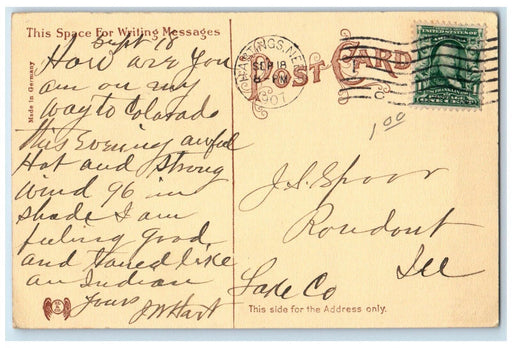 This Space For Writing Messages
Sept 18
How are you
am on my
way to Colorado
this Evening awful
Hot and strong
wind 96 in
shade I am
feeling good
and taned like
an Indian
yours
J W Hart
Made in Germany
POST CARD
HASTINGS, NEB.
SEP 18
8 PM
1907
UNITED STATES OF AMERICA
FRANKLIN
POSTAGE
ONE CENT
1 00
J. S. Spoor
Rondout
Ill
Lake Co
This side for the Address only.